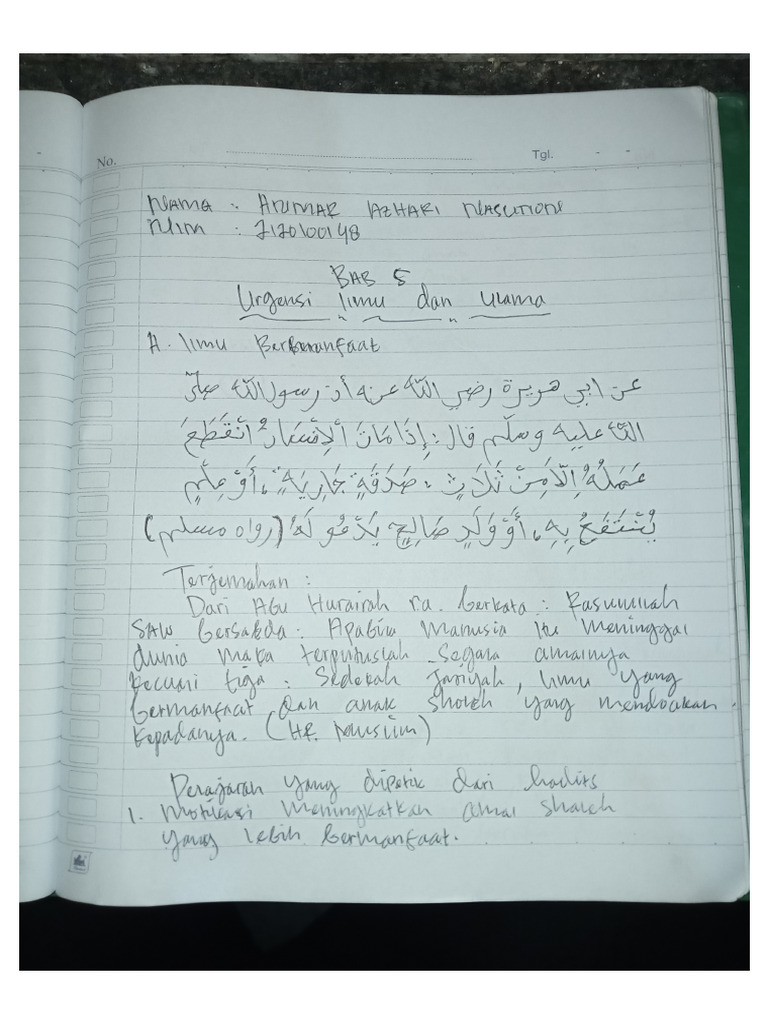 No.
Tgl. - -
Nama : Anumar Azhari Nasution
Nim : 2120100148
BAB 5
Urgensi Ilmu dan Ulama
A. Ilmu Bermanfaat
عن ابي هريرة رضي الله عنه أن رسول الله صلّى
اللّه عليه وسلّم قال : إِذَا مَاتَ ألْإِنْسَانُ انْقَطَعَ
عَمَلُهُ إِلاَّ مِنْ ثَلَاثٍ : صَدَقَةٍ جَارِيَةٍ ، أَوْ عِلْمٍ
يُنْتَفَعُ بِهِ ، أَوْ وَلَدٍ صَالِحٍ يَدْعُو لَهُ (رواه مسلم)
Terjemahan :
Dari Abu Hurairah r.a. berkata : Rasulullah
SAW bersabda : Apabila Manusia itu Meninggal
dunia maka terputuslah segala amalnya
kecuali tiga : Sedekah Jariyah, Ilmu yang
bermanfaat dan anak sholeh yang mendoakan
kepadanya. (HR. Muslim)
Pelajaran yang dipetik dari hadits
1. Motivasi meningkatkan amal shaleh
yang lebih bermanfaat.